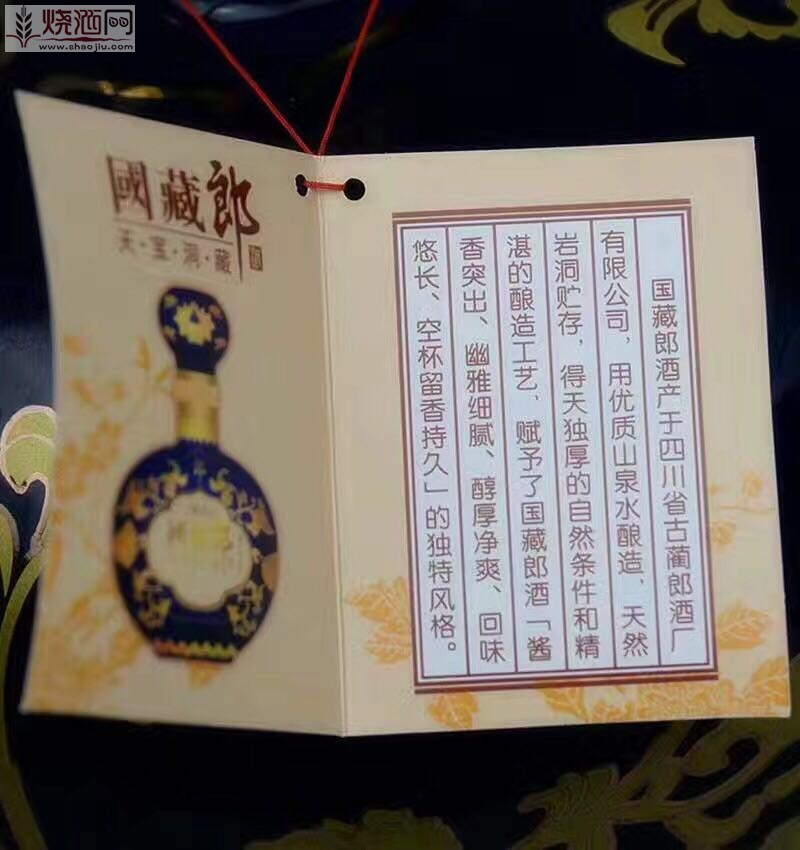 烧酒网
www.shaojiu.com
國藏郎
天·宝·洞·藏
国藏郎酒产于四川省古蔺郎酒厂
有限公司，用优质山泉水酿造、天然
岩洞贮存，得天独厚的自然条件和精
湛的酿造工艺，赋予了国藏郎酒「酱
香突出、幽雅细腻、醇厚净爽、回味
悠长、空杯留香持久」的独特风格。